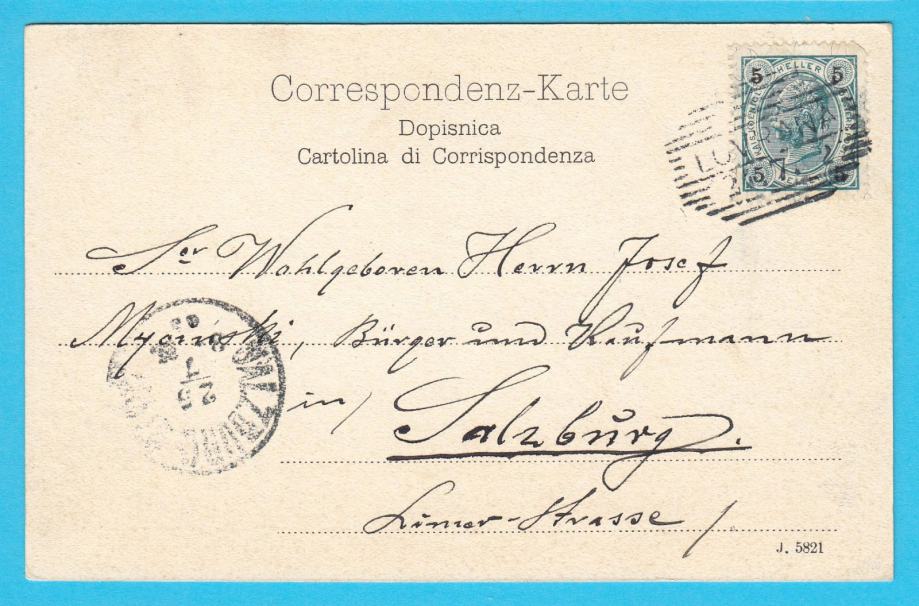 Correspondenz-Karte
Dopisnica
Cartolina di Corrispondenza
5 HELLER 5
5 5
LUV
7
Ser Wohlgeboren Herrn Josef
Bürger und Kaufmann
in/
Salzburg.
Linzer-Strasse /
SALZBURG
25
J. 5821